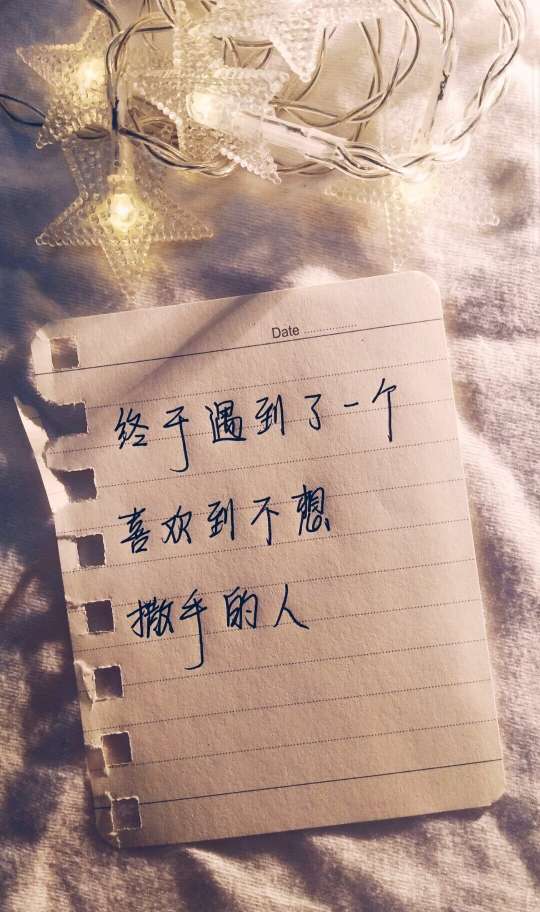 Date
终于遇到了一个
喜欢到不想
撒手的人